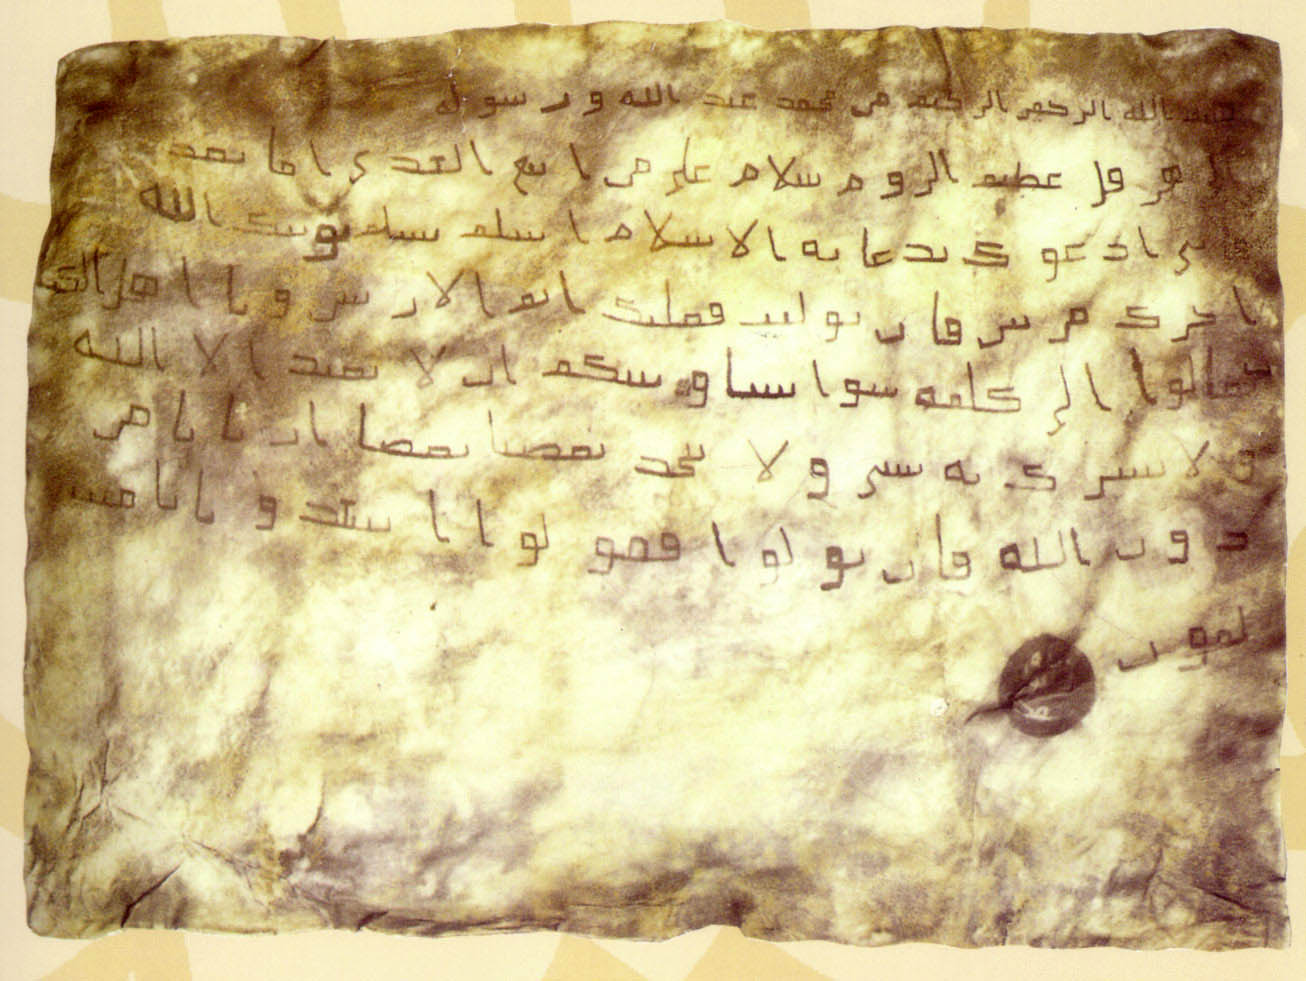 بسم الله الرحمن الرحيم من محمد عبد الله ورسوله
الى هرقل عظيم الروم سلام على من اتبع الهدى اما بعد
فانى ادعوك بدعاية الاسلام اسلم تسلم يوتك الله
اجرك مرتين فان توليت فعليك اثم الاريسين ويا اهل الكتب
تعالوا الى كلمة سوا بيننا وبينكم ان لا نعبد الا الله
ولا نشرك به شى ولا يتخذ بعضنا بعضا اربابا من
دون الله فان تولوا فقولوا اشهدوا بانا مس
لمون